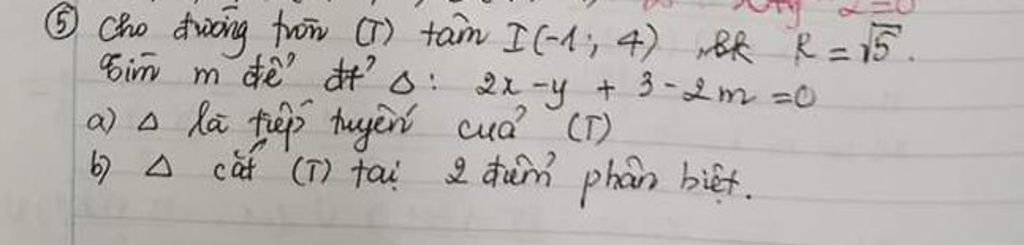 x+y-2=0
⑤ Cho đường tròn (T) tâm I(-1; 4), BK R = √5.
Tìm m để đt Δ: 2x - y + 3 - 2m = 0
a) Δ là tiếp tuyến của (T)
b) Δ cắt (T) tại 2 điểm phân biệt.